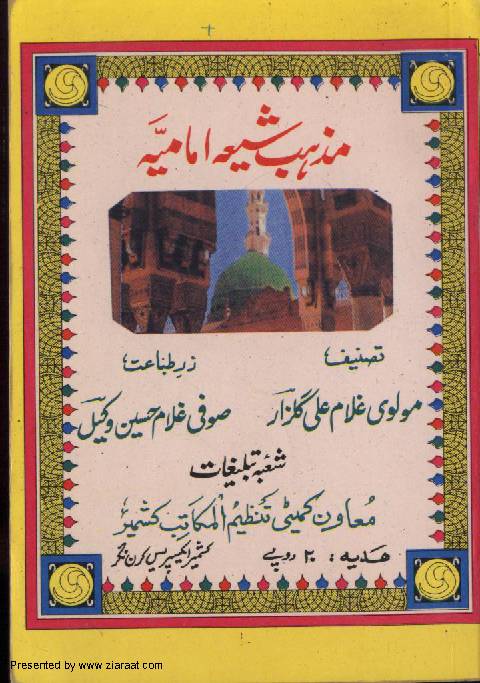 مذہب شیعہ امامیہ
تصنیف
زیر طباعت
مولوی غلام علی گلزار
صوفی غلام حسین وکیل
شعبہ تبلیغات
معاون کمیٹی تنظیم المکاتب کشمیر
ھدیہ : ۲۰ روپے
کشمیر ایکسپریس کرن نگر
Presented by www.ziaraat.com